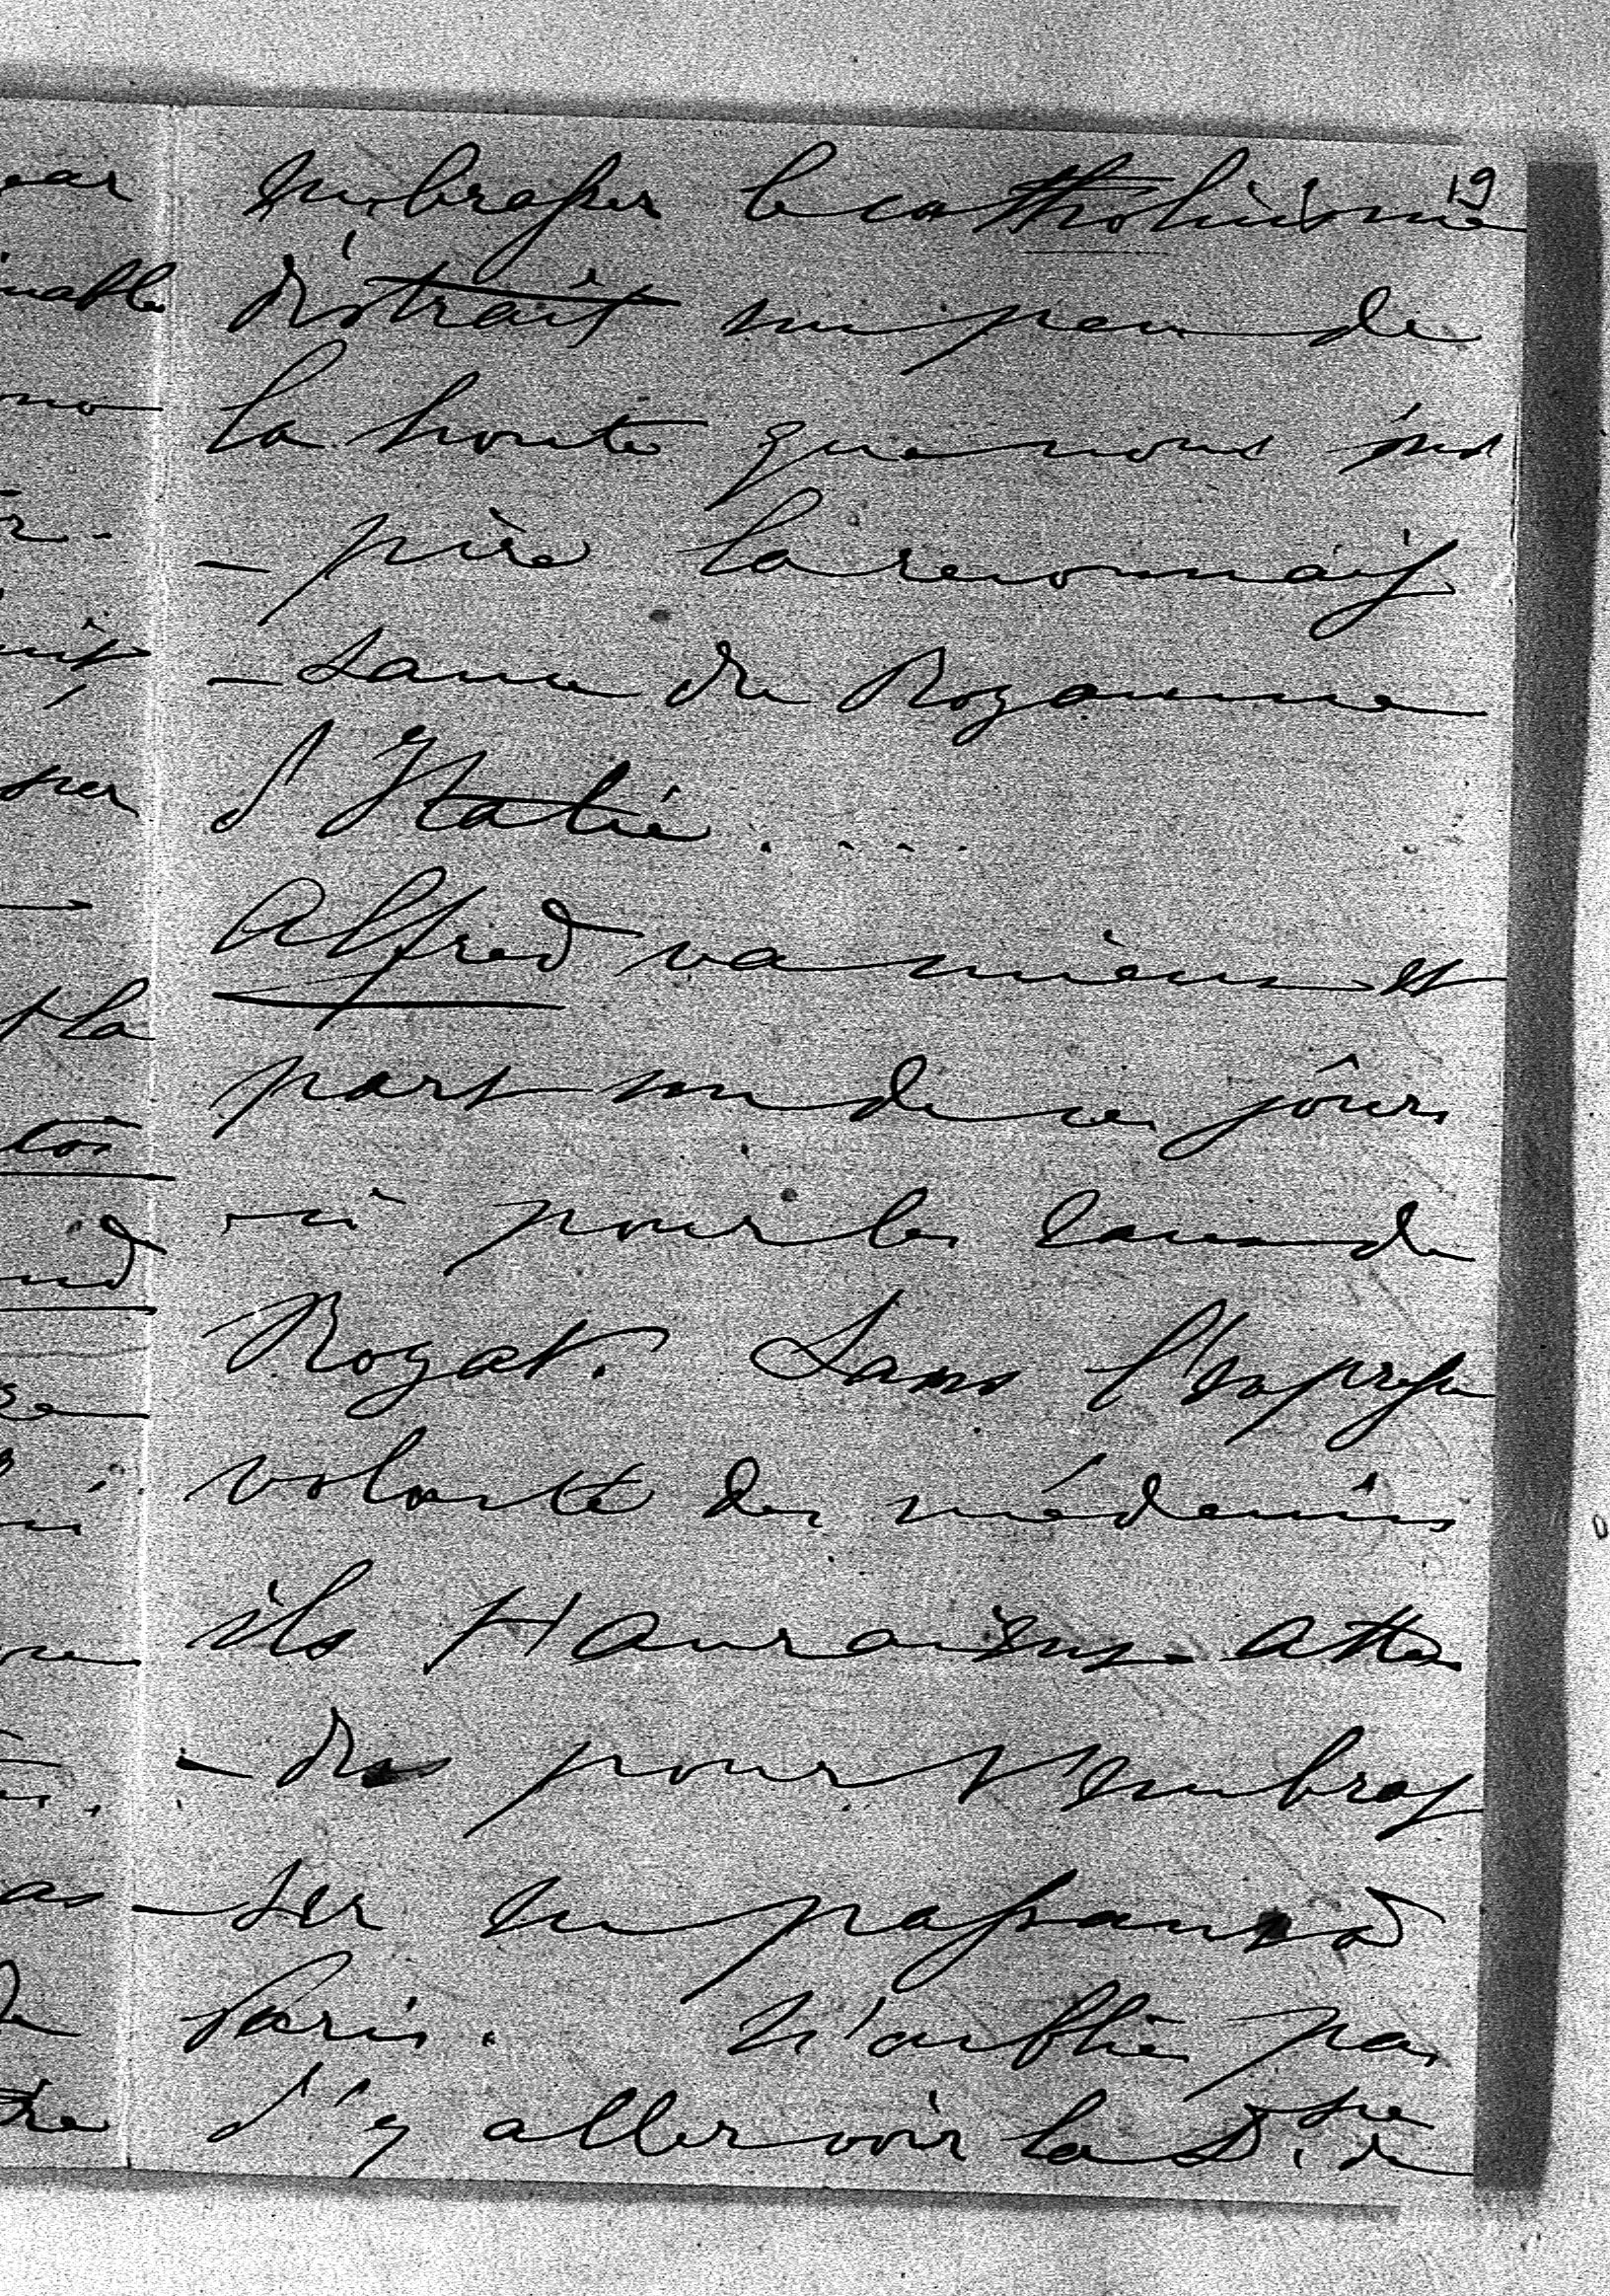 19
embrasser le catholicisme
distrait un peu de
la honte que nous ins
- pire la reconnais
- sance du Royaume
d'Italie . . . . .
Alfred va mieux et
part un de ces jours
-ci pour les eaux de
Royat. Sans l'expresse
volonté des médecins
ils t'auraient atten
- du pour t'embras
- ser en passant à
Paris. N'oublie pas
d'y aller voir la D.sse de